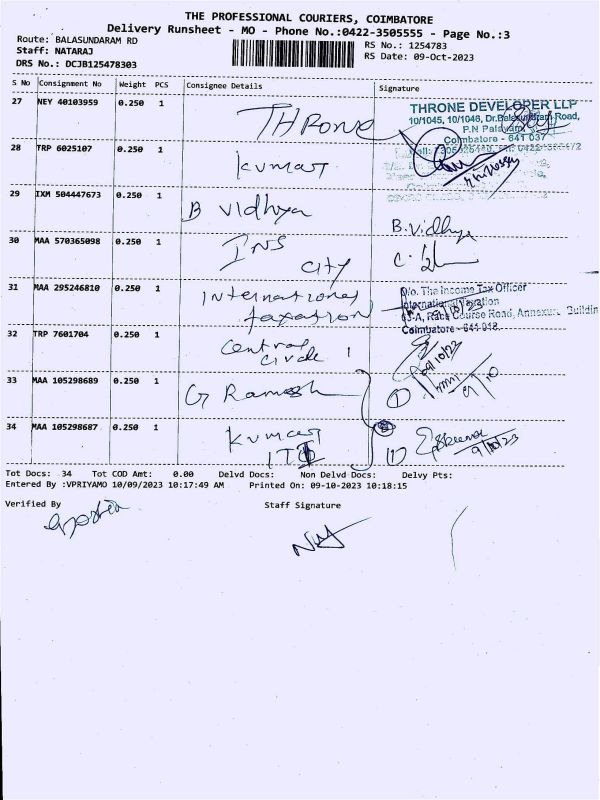 THE PROFESSIONAL COURIERS, COIMBATORE
Delivery Runsheet - MO - Phone No.:0422-3505555 - Page No.:3
Route: BALASUNDARAM RD RS No.: 1254783
Staff: NATARAJ RS Date: 09-Oct-2023
DRS No.: DCJB125478303
S No Consignment No Weight PCS Consignee Details Signature
27 NEY 40103959 0.250 1 THRONE
THRONE DEVELOPER LLP
10/1045, 10/1046, Dr.Balasundram Road,
Coimbatore - 641 037
28 TRP 6025107 0.250 1 kumar
29 IXM 504447673 0.250 1 B vidhya B.vidhya
30 MAA 570365098 0.250 1 INS
city
31 MAA 295246810 0.250 1 International
taxation
O/o. The Income Tax Officer
International Taxation
63-A, Race Course Road, Annexure Buildin
Coimbatore - 641 018
32 TRP 7601704 0.250 1 central
circle 1
33 MAA 105298689 0.250 1 G Ramesh
34 MAA 105298687 0.250 1 Kumar
9/10/23
Tot Docs: 34 Tot COD Amt: 0.00 Delvd Docs: Non Delvd Docs: Delvy Pts:
Entered By :VPRIYAMO 10/09/2023 10:17:49 AM Printed On: 09-10-2023 10:18:15
Verified By Staff Signature